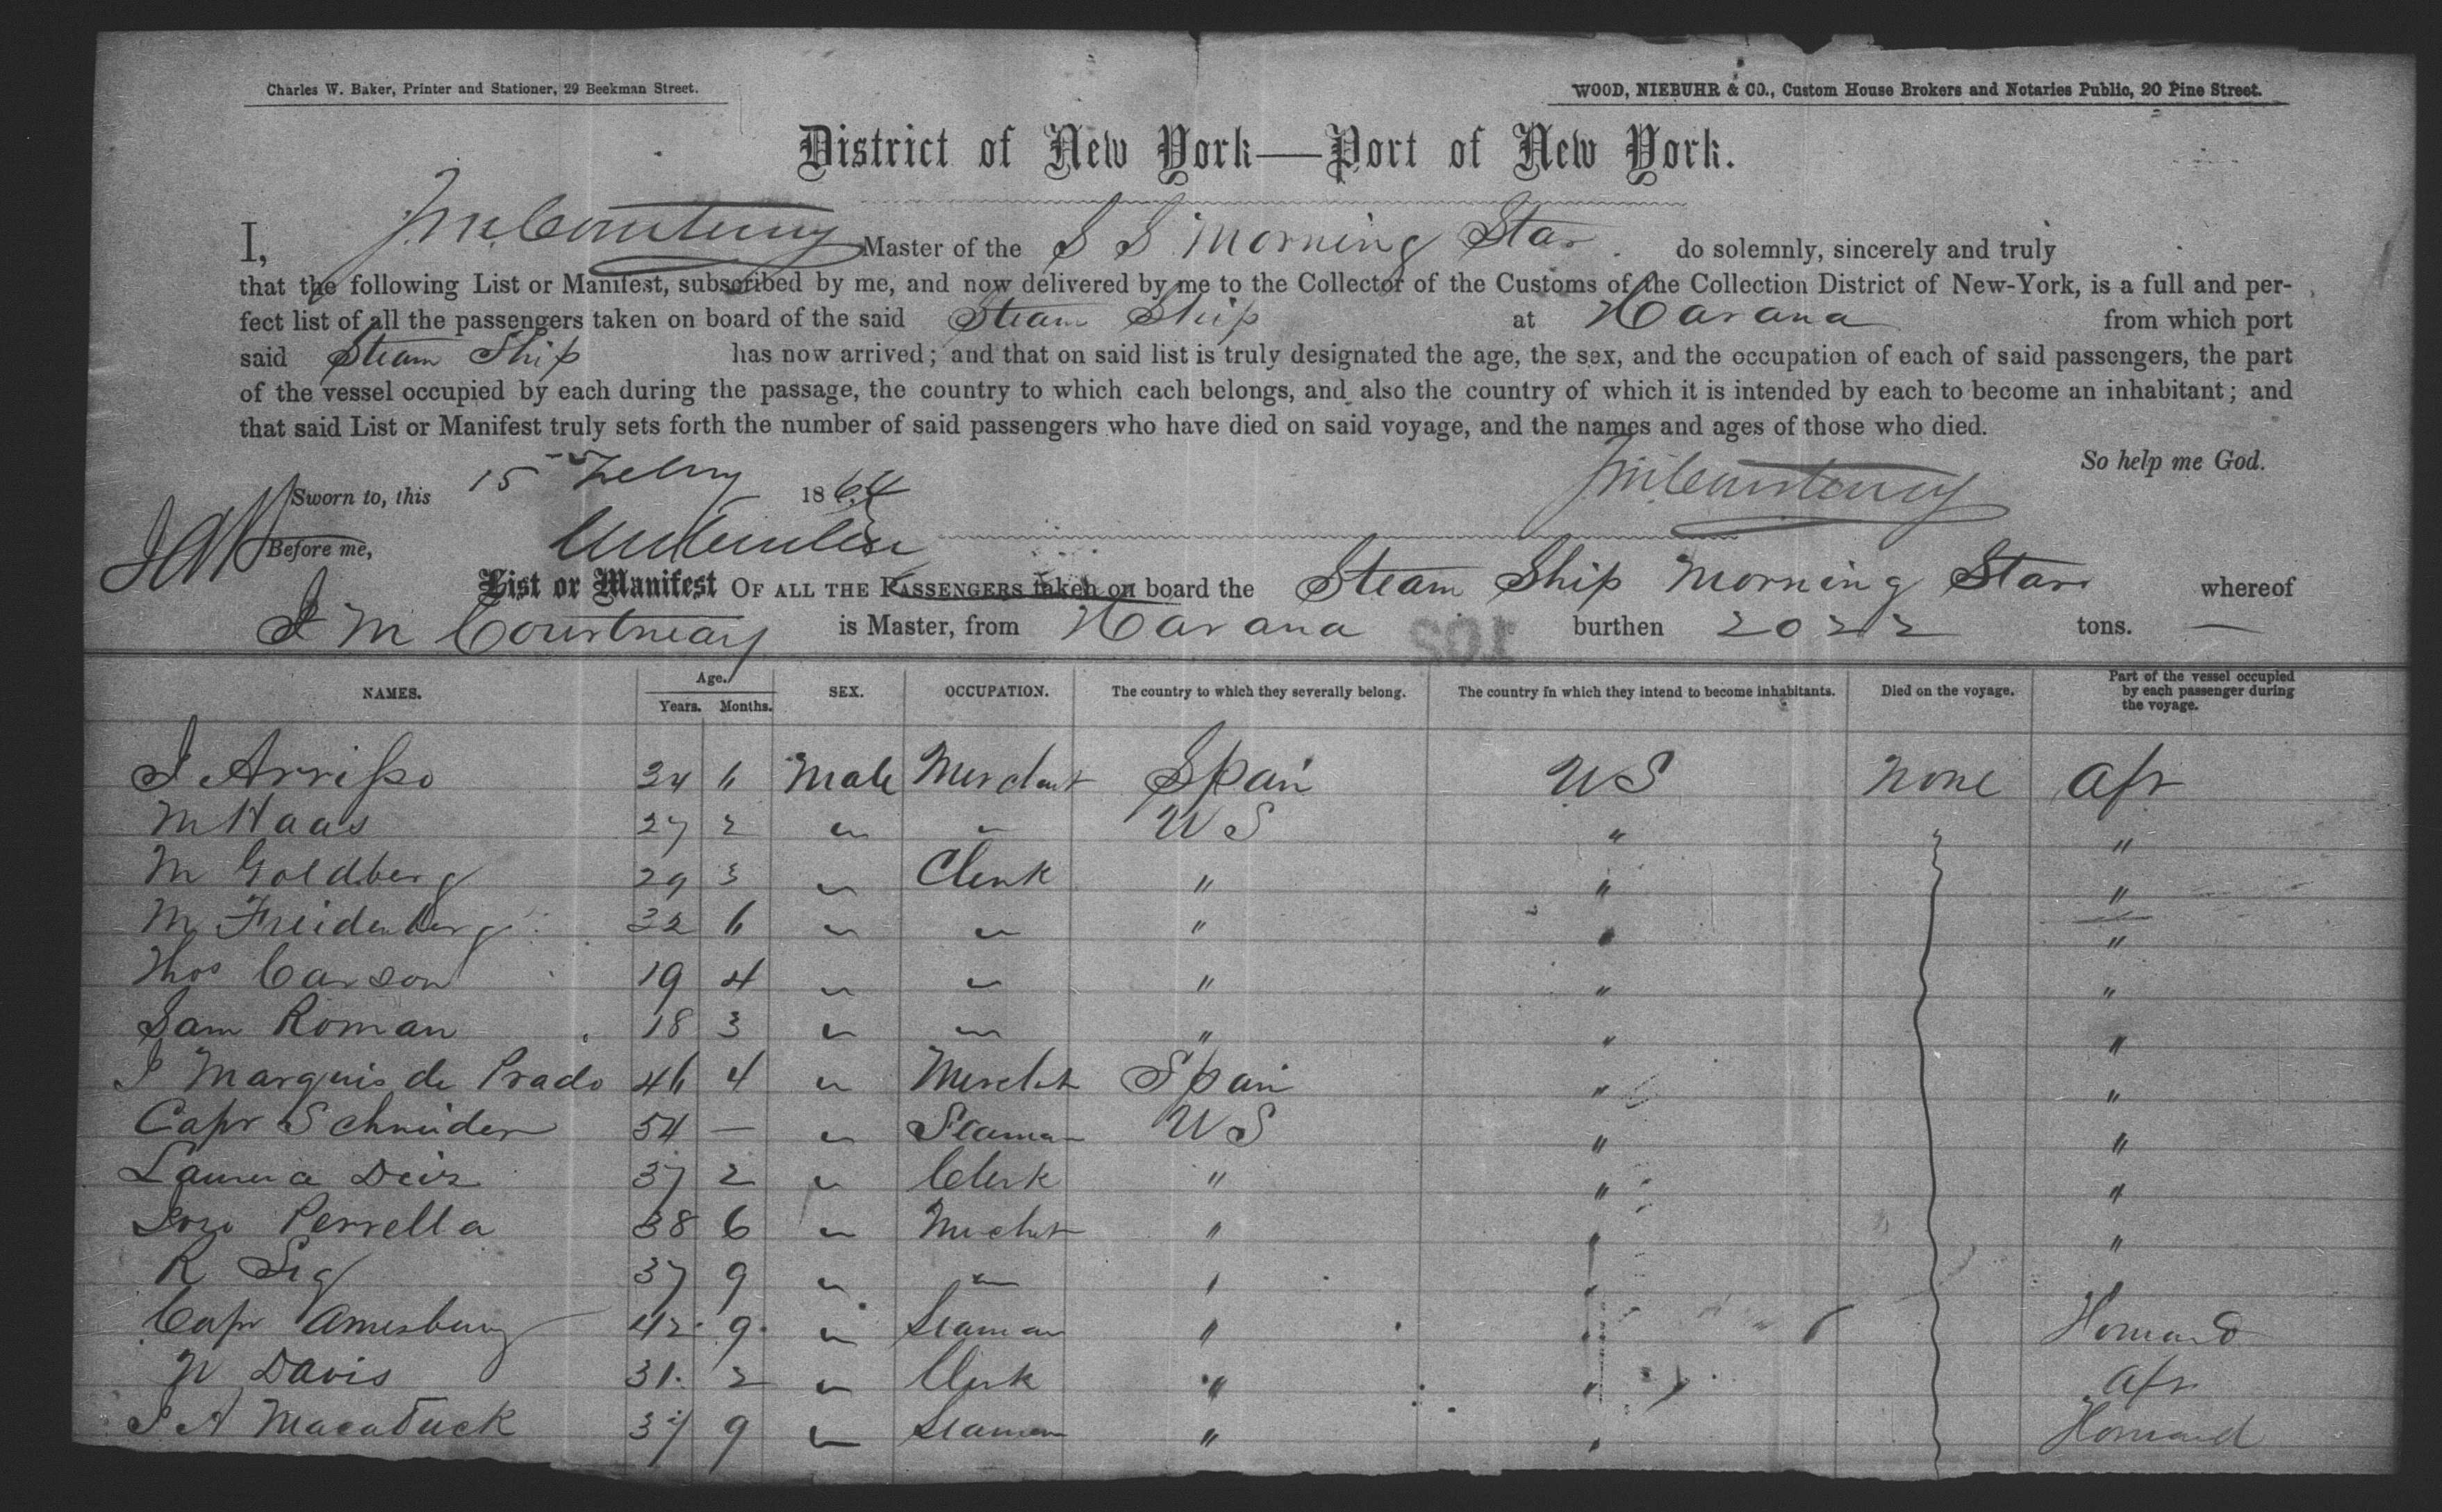 Charles W. Baker, Printer and Stationer, 29 Beekman Street.
WOOD, NIEBUHR & CO., Custom House Brokers and Notaries Public, 20 Pine Street.
District of New York—Port of New York.
I, Master of the S S Morning Star do solemnly, sincerely and truly
that the following List or Manifest, subscribed by me, and now delivered by me to the Collector of the Customs of the Collection District of New-York, is a full and per-
fect list of all the passengers taken on board of the said Steam Ship at Havana from which port
said Steam Ship has now arrived; and that on said list is truly designated the age, the sex, and the occupation of each of said passengers, the part
of the vessel occupied by each during the passage, the country to which each belongs, and also the country of which it is intended by each to become an inhabitant; and
that said List or Manifest truly sets forth the number of said passengers who have died on said voyage, and the names and ages of those who died.
So help me God.
Sworn to, this 15 Febry 1864
Before me,
List or Manifest OF ALL THE PASSENGERS taken on board the Steam Ship Morning Star whereof
J M Courtneay is Master, from Havana burthen 2022 tons. —
NAMES. Age. Years. Months. SEX. OCCUPATION. The country to which they severally belong. The country in which they intend to become inhabitants. Died on the voyage. Part of the vessel occupied by each passenger during the voyage.
J 24 Male Merchant Spain US None Aft
M Haas 27 2 " " US " "
M Goldberg 29 3 " Clerk " " "
M Freidenberg 32 6 " " " " "
Thos Carson 19 4 " " " " "
Sam Roman 18 3 " " " " "
J Marquis de Prado 46 4 " Mercht Spain " "
Capt Schneider 54 — " Seaman US " "
37 2 " Clerk " " "
Perrella 38 6 " Mercht " " "
R 37 9 " " " "
Capt Amesbury 42 9 " Seaman " " Forward
W Davis 31 2 " Clerk " " Aft
J A 37 9 " Seaman " " Forward